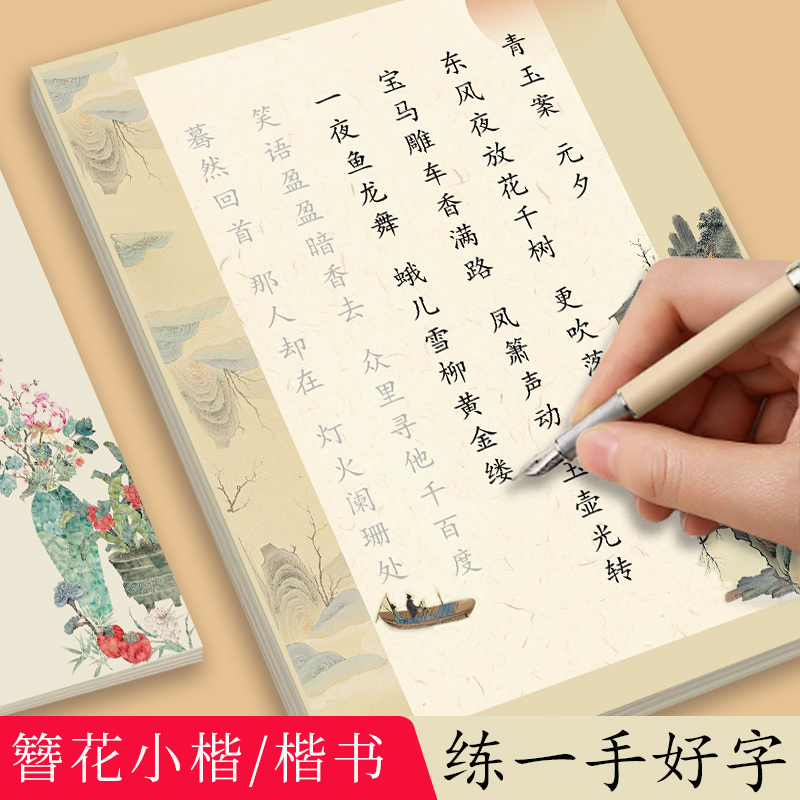 青玉案 元夕
东风夜放花千树 更吹落
宝马雕车香满路 凤箫声动 玉壶光转
一夜鱼龙舞 蛾儿雪柳黄金缕
笑语盈盈暗香去 众里寻他千百度
蓦然回首 那人却在 灯火阑珊处
簪花小楷/楷书
练一手好字